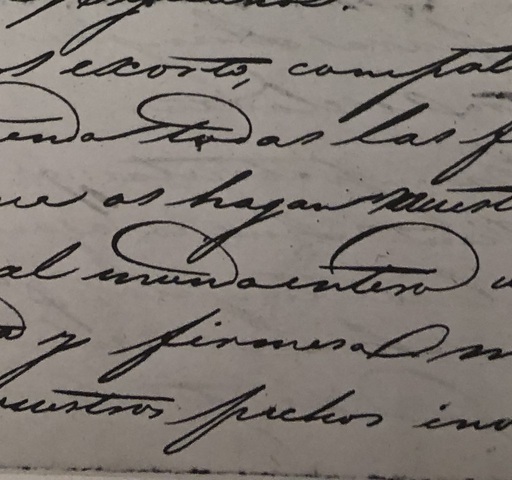 s exorto, compat
enda todas las f
ue os hagan nuest
al mundo entero
y firmesa
nuestros pechos ino